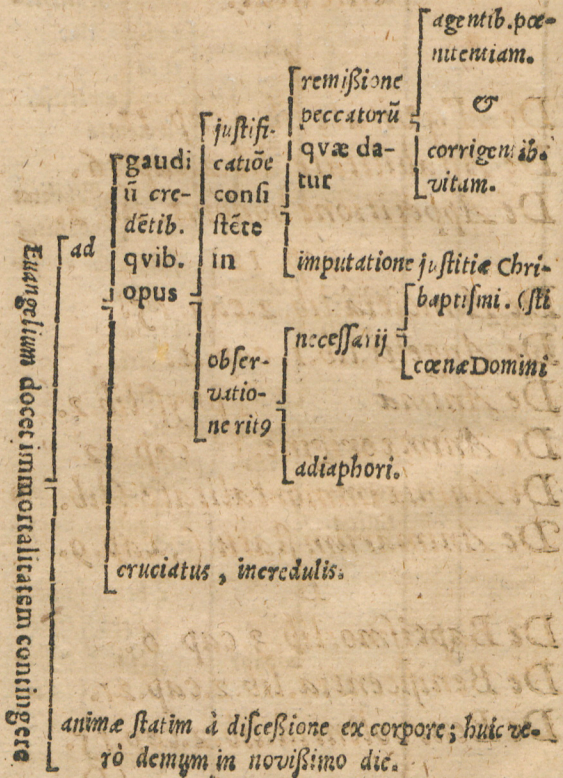 Euangelium docet immortalitatem contingere
ad
gaudi
ū cre-
dētib.
qvib.
opus
justifi-
catiōe
consi
stēte
in
remißione
peccatorū
qvæ da-
tur
agentib. pœ-
nitentiam.
&
corrigentib.
vitam.
imputatione justitiæ Chri-
(sti
baptismi.
necessarij
cœnæ Domini
obser-
vatio-
ne rit9
adiaphori.
cruciatus, incredulis.
animæ statim à disceßione ex corpore; huic ve-
rò demum in novißimo die.